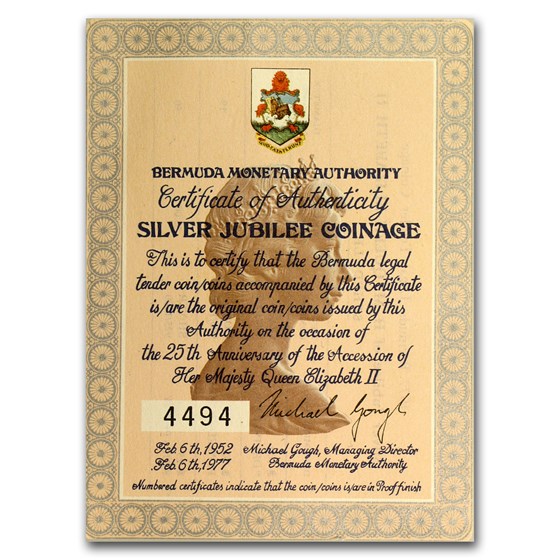 BERMUDA MONETARY AUTHORITY
Certificate of Authenticity
SILVER JUBILEE COINAGE
This is to certify that the Bermuda legal
tender coin/coins accompanied by this Certificate
is/are the original coin/coins issued by this
Authority on the occasion of
the 25th Anniversary of the Accession of
Her Majesty Queen Elizabeth II
4494
Michael Gough
Feb. 6th, 1952 Michael Gough, Managing Director
Feb. 6th, 1977 Bermuda Monetary Authority
Numbered certificates indicate that the coin/coins is/are in Proof finish